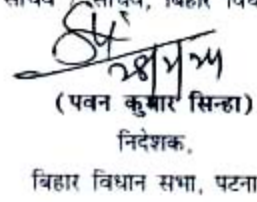 सचिव, बिहार विध
28/7/24
(पवन कुमार सिन्हा)
निदेशक,
बिहार विधान सभा, पटना